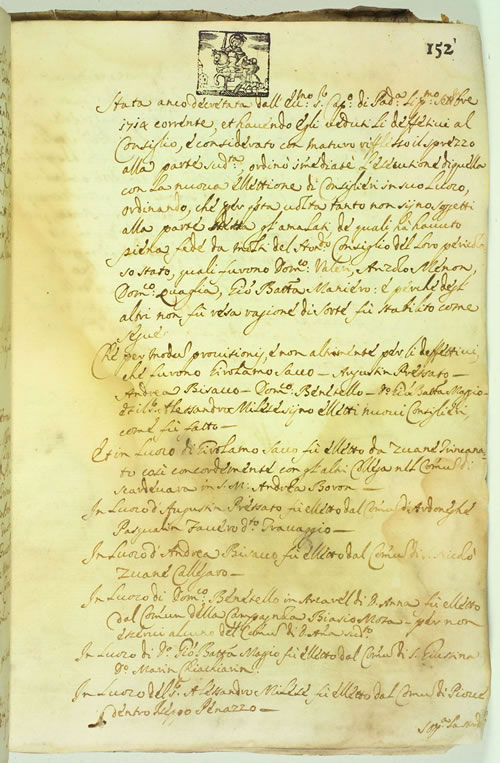 152
Stata anco decretata dall' Ill.mo S.r Cap.o di Pad.a li p.mo 7bre
1714 corrente, et havendo egli veduti li deffetivi al
Consiglio, e considerato con maturo riflesso il sprezzo
alla parte sud.ta, ordinò imediate l'esecutione di quella
con la nuova ellettione di Consiglieri in suo luoco,
ordinando, che per q.sta volta tanto non sijno soggetti
alla parte gl'amalati, de quali ha havuto
piena fede da molti del Consiglio del loro pericolo
so stato, quali furono Dom.co Valeri, Anzolo Menon,
Dom.co Quaglia, Gio Batta Maniero: e perche degl'
altri non fù resa ragione di sorte fù stabilito come
segue
Che per modum provisionis, e non altrimente per li deffettivi,
che furono Girolamo Sacco — Augustin Pressato —
Andrea Bisacco — Dom.co Benetello — Gio Batta Maggio
Alessandro Milese sijno elletti nuovi Consiglieri,
come fù fatto —
Et in luoco di Girolamo Sacco fù elletto da Zuane
to così concordemente con gl'altri nel Comun di
Scardevara in S. M. Andrea Boron
In luoco d'Augustin Pressato fù elletto dal Comun di Ardoneghe
Pasqualin Favero d.to Travaggio —
In luoco d'Andrea Bisacco fù elletto dal Comun di
Zuane Callegaro —
In luoco di Dom.co Benetello in di D. Anna fù elletto
dal Comun della Campagnola Biasio Mora — per non
esservi alcuno del Comun di D. Anna sud.o
In luoco di D.o Gio Batta Magio fù elletto dal Comun di S. Giustina
D.o Marin Chiachiarin
In luoco del S.r Alessandro Milese fù elletto dal Comun di Piove
di dentro Penazzo —